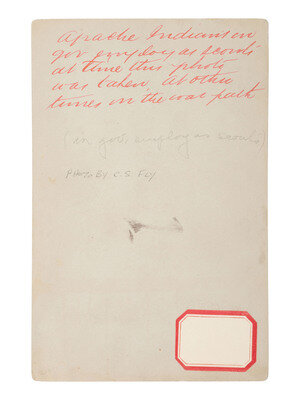 Apache Indians in
gov employ as scouts
at time this photo
was taken. At other
times in the war path
(in gov. employ as scouts)
Photo By C. S. Fly